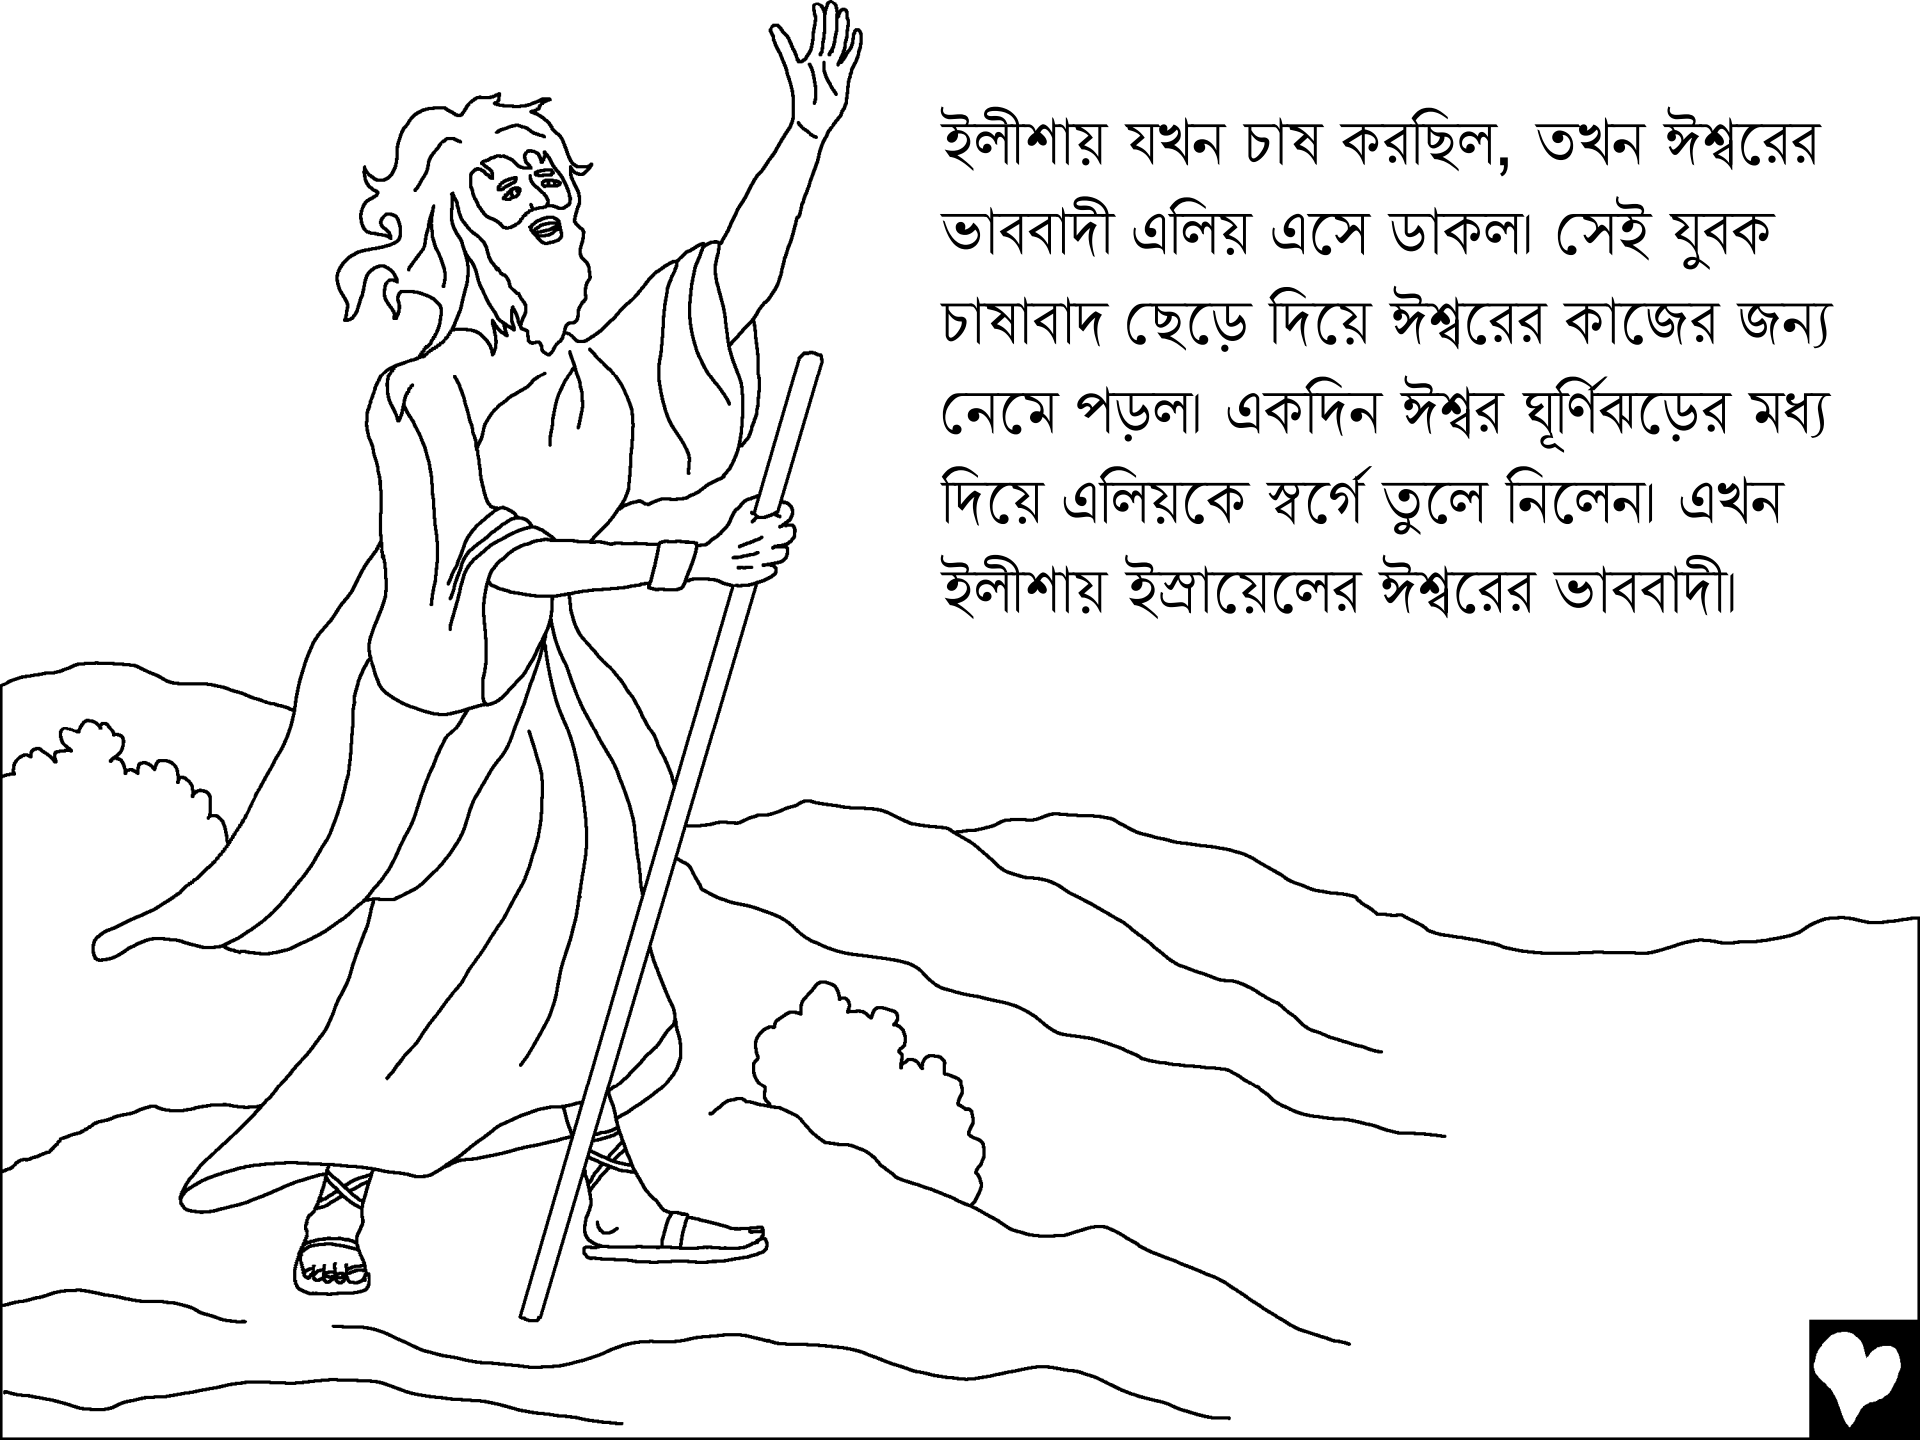 ইলীশায় যখন চাষ করছিল, তখন ঈশ্বরের
ভাববাদী এলিয় এসে ডাকল। সেই যুবক
চাষাবাদ ছেড়ে দিয়ে ঈশ্বরের কাজের জন্য
নেমে পড়ল। একদিন ঈশ্বর ঘূর্ণিঝড়ের মধ্য
দিয়ে এলিয়কে স্বর্গে তুলে নিলেন। এখন
ইলীশায় ইস্রায়েলের ঈশ্বরের ভাববাদী।